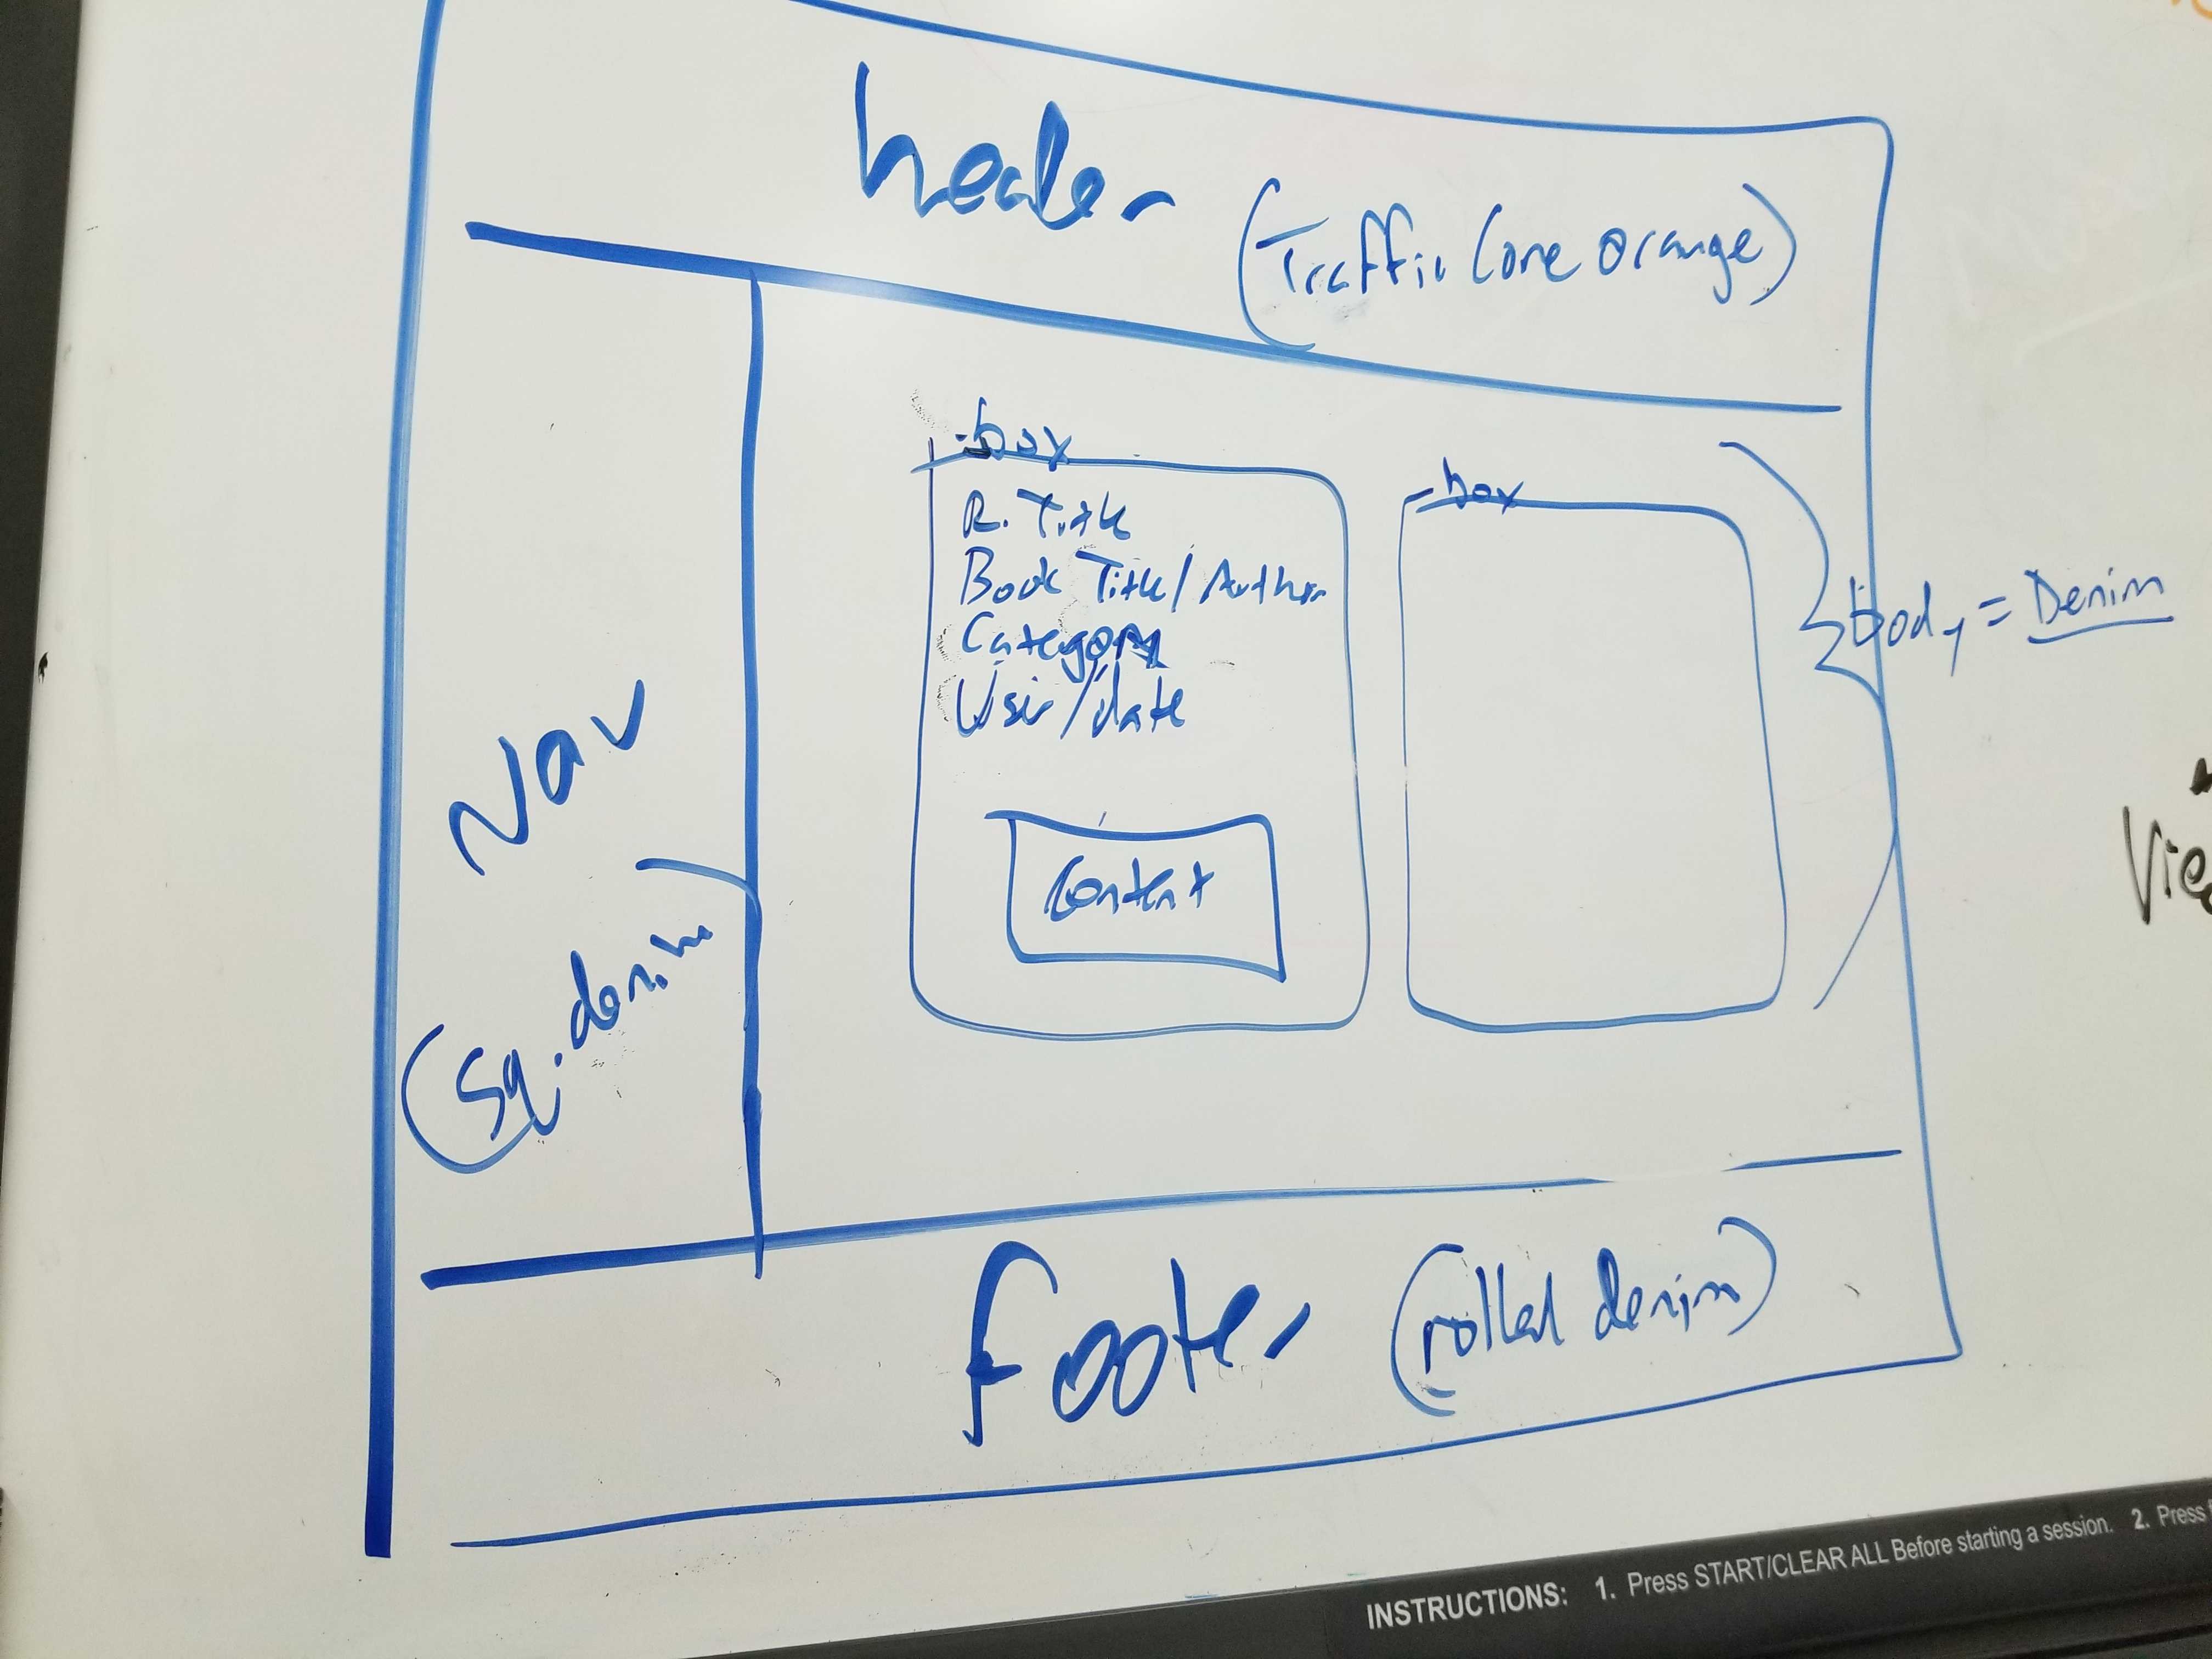 header
(Traffic Cone Orange)
-box
R. Title
Book Title/Author
Category
User/date
Content
-box
body = Denim
Nav
(Sq. denim)
Footer
(rolled denim)
INSTRUCTIONS: 1. Press START/CLEAR ALL Before starting a session. 2. Press